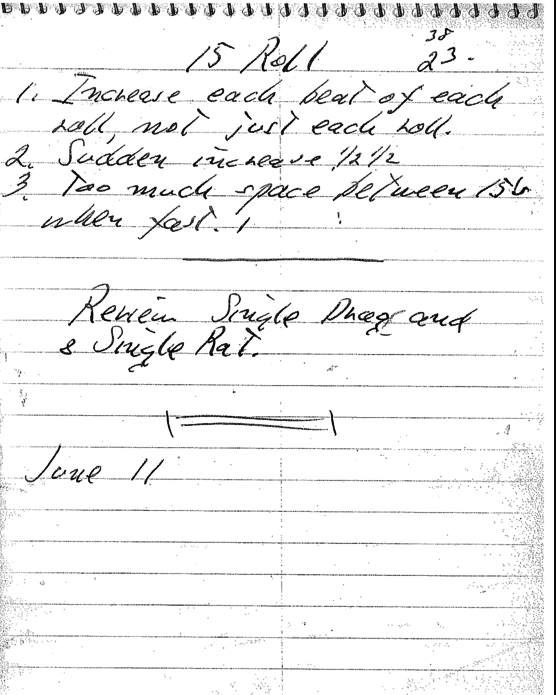 38
15 Roll 23.
1. Increase each beat of each
roll, not just each roll.
2. Sudden increase ½ ½
3. Too much space between 15
when fast.
Review Single Drag and
& Single Rat.
June 11